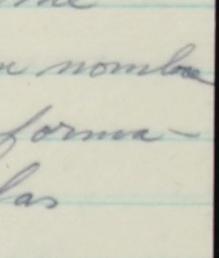 me
nombre
forma-
las